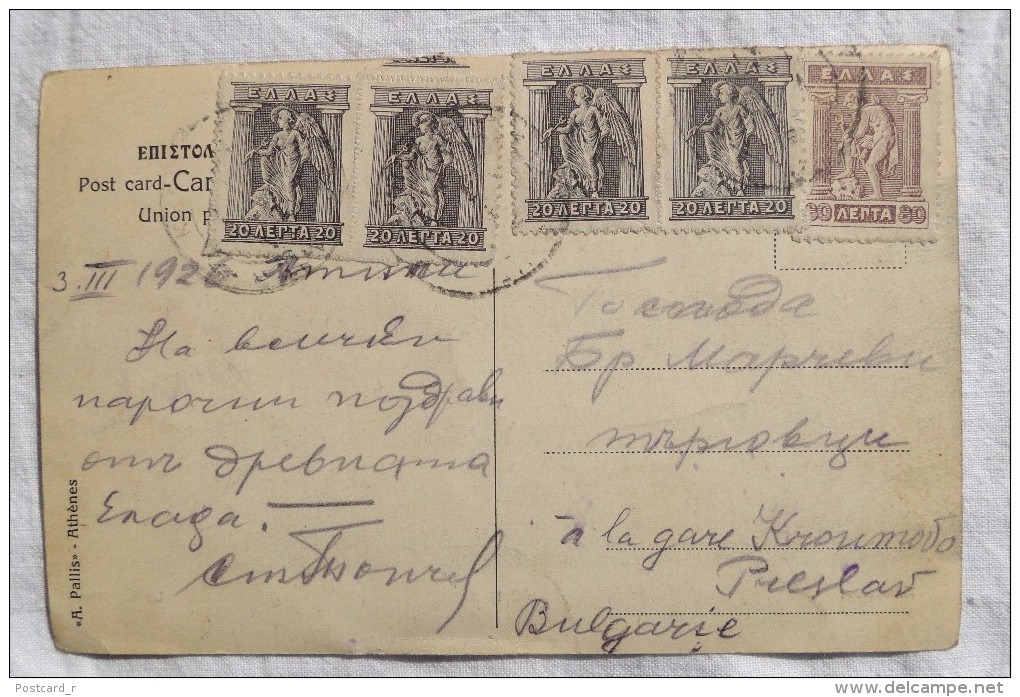 ΕΛΛΑΣ ΕΛΛΑΣ ΕΛΛΑΣ ΕΛΛΑΣ ΕΛΛΑΣ
20 ΛΕΠΤΑ 20 20 ΛΕΠΤΑ 20 20 ΛΕΠΤΑ 20 20 ΛΕΠΤΑ 20 80 ΛΕΠΤΑ 80
ΕΠΙΣΤΟΛ
Post card-Car
Union p
3.III 1926 Атина
На всички
нарочни поздрави
отъ древната
Елада.
Господа
Бр Марчеви
търговци
à la gare Kroumovo
Preslav
Bulgarie
«A. Pallis» - Athènes
Postcard_r
delcampe.net